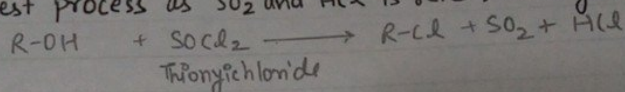 est process as SO2 and HCl is
R-OH + SOCl2 ⟶ R-Cl + SO2 + HCl
Thionyichloride